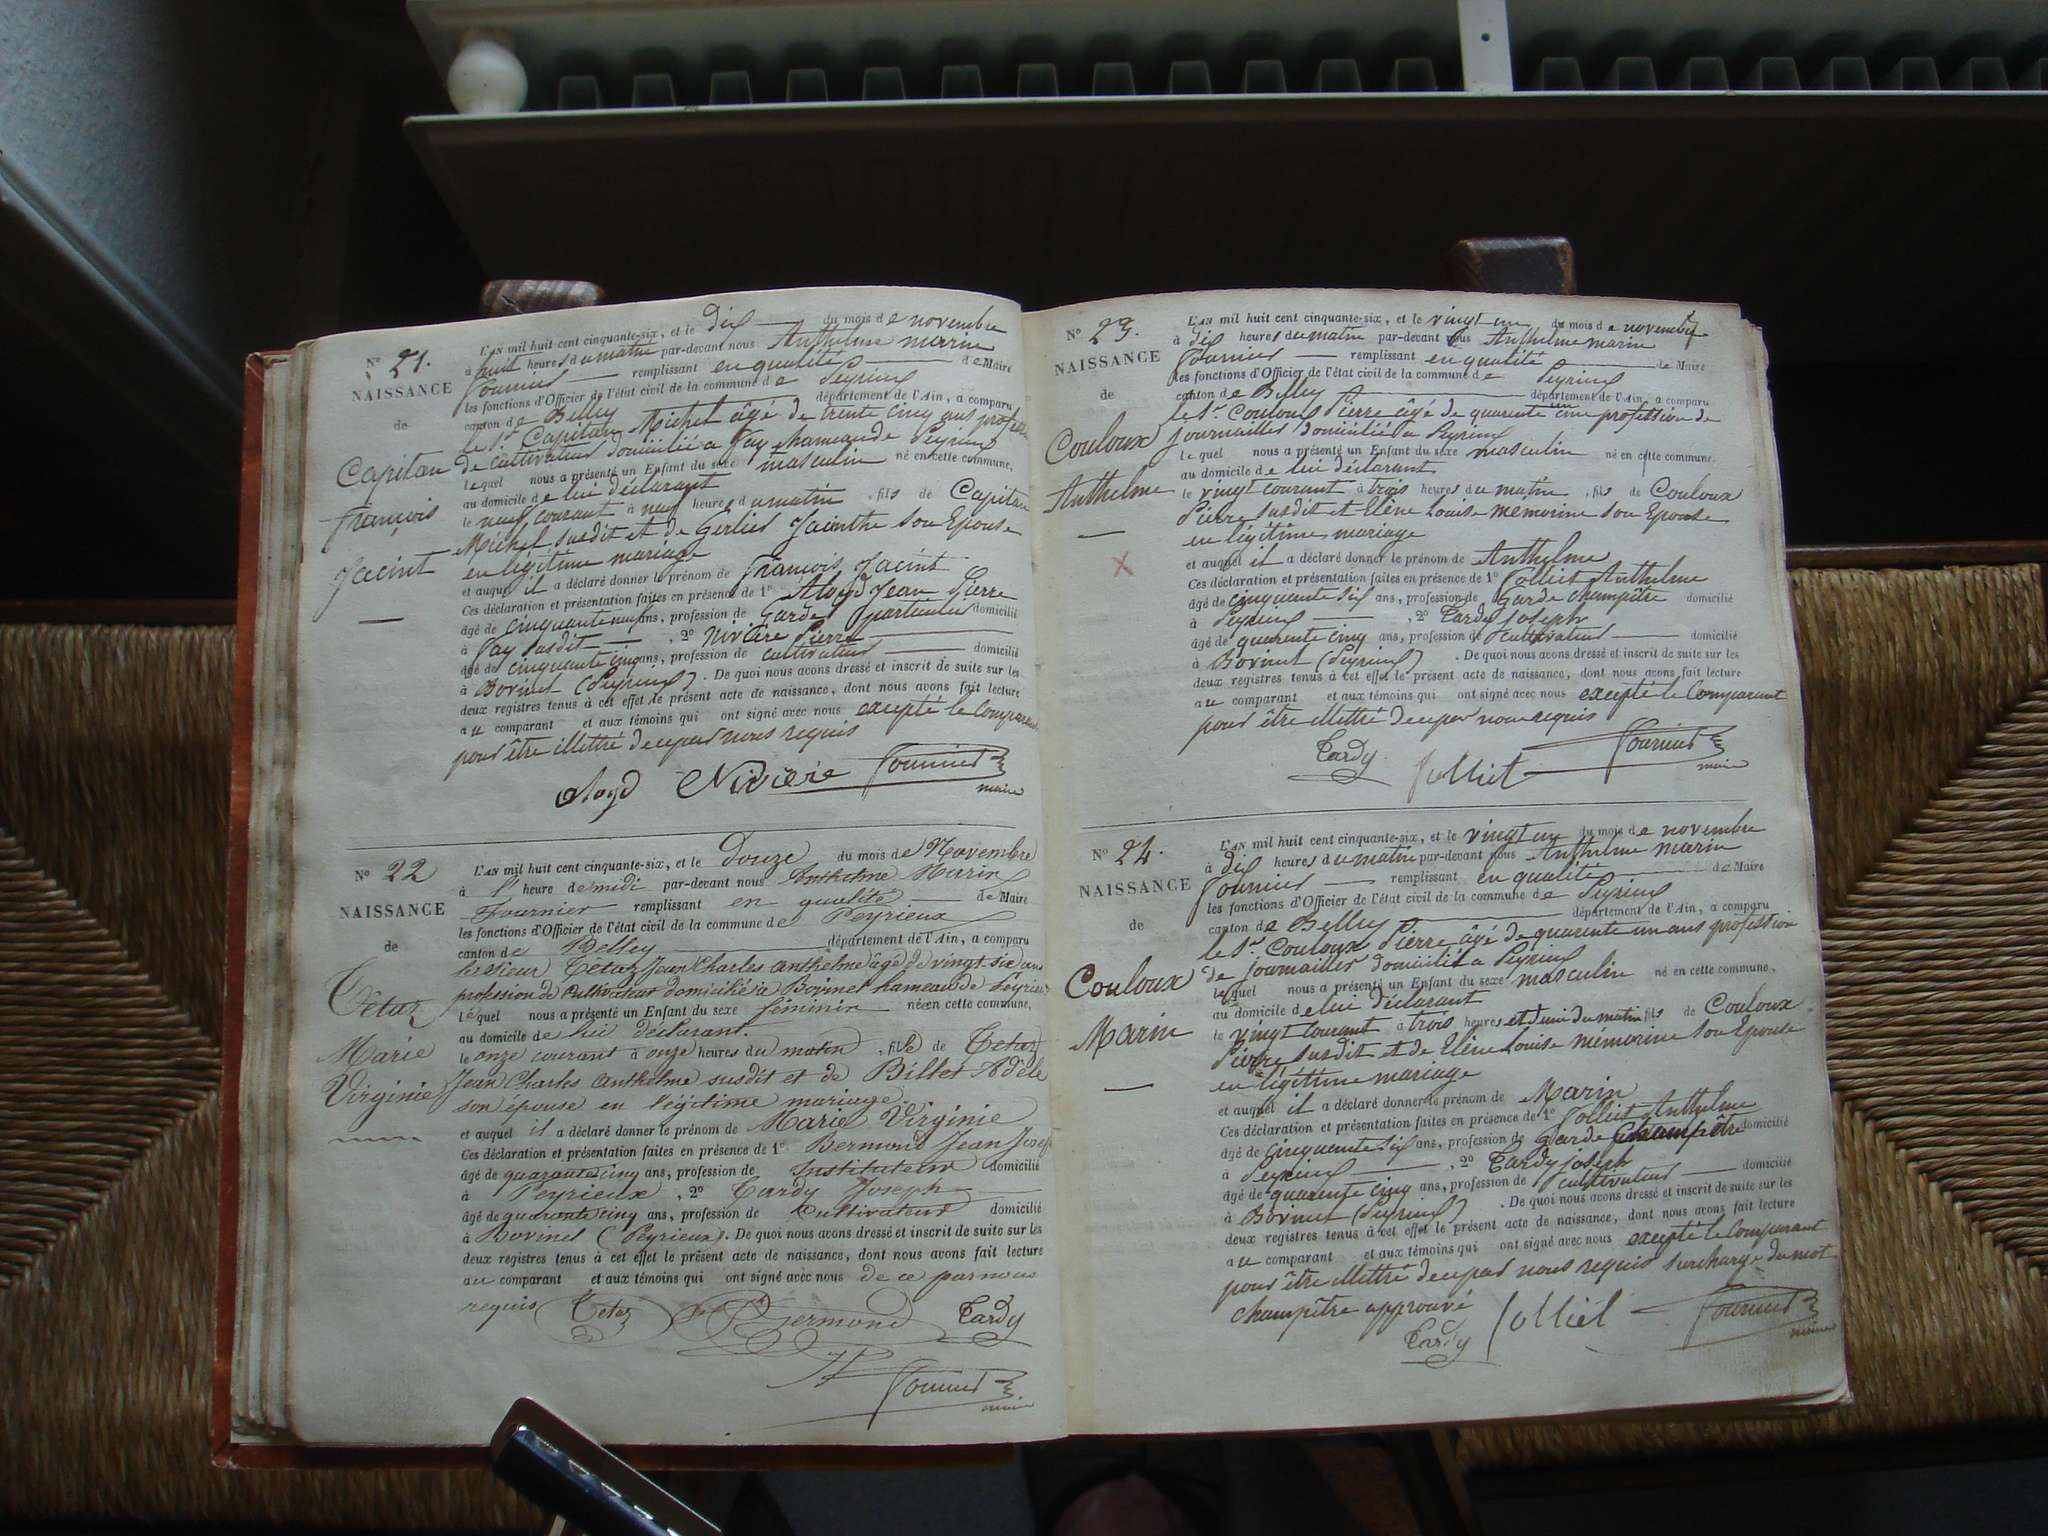 N° 21.
NAISSANCE
de
Capitan
François
Jacint
L'AN mil huit cent cinquante-six, et le dix du mois de novembre
à huit heures du matin par-devant nous Anthelme marin
Fournier remplissant en qualité de Maire
les fonctions d'Officier de l'état civil de la commune de Peyrieux
canton de Belley département de l'Ain, a comparu
le Sr. Capitan Michel âgé de trente cinq ans profession
de cultivateur domicilié a Fay hameau de Peyrieux
lequel nous a présenté un Enfant du sexe masculin né en cette commune,
au domicile de lui déclarant
le neuf courant à neuf heures du matin, fils de Capitan
Michel susdit et de Gerlier Jacinthe son Epouse
en légitime mariage
et auquel il a déclaré donner le prénom de François Jacint
Ces déclaration et présentation faites en présence de 1° Aloyd Jean Pierre
âgé de cinquante neuf ans, profession de Garde particulier domicilié
à Fay susdit, 2° Nivière Pierre
âgé de cinquante cinq ans, profession de cultivateur domicilié
à Bovinel (Peyrieux). De quoi nous avons dressé et inscrit de suite sur les
deux registres tenus à cet effet le présent acte de naissance, dont nous avons fait lecture
au comparant et aux témoins qui ont signé avec nous excepté le Comparant
pour être illettré de ce par nous requis
Aloyd Nivière Fournier
maire
N° 22
NAISSANCE
de
Tétaz
Marie
Virginie
L'AN mil huit cent cinquante-six, et le douze du mois de Novembre
à l' heure de midi par-devant nous Anthelme Marin
Fournier remplissant en qualité de Maire
les fonctions d'Officier de l'état civil de la commune de Peyrieux
canton de Belley département de l'Ain, a comparu
le sieur Tétaz Jean Charles anthelme âgé de vingt-six ans
profession de cultivateur domicilié à Bovinel hameau de Peyrieux
lequel nous a présenté un Enfant du sexe féminin née en cette commune,
au domicile de lui déclarant.
le onze courant à onze heures du matin, fille de Tétaz
Jean Charles anthelme susdit et de Billet Adèle
son épouse en légitime mariage.
et auquel il a déclaré donner le prénom de Marie Virginie
Ces déclaration et présentation faites en présence de 1° Bermond Jean Joseph
âgé de quarante cinq ans, profession de Instituteur domicilié
à Peyrieux, 2° Tardy Joseph
âgé de quarante cinq ans, profession de Cultivateur domicilié
à Bovinel (Peyrieux). De quoi nous avons dressé et inscrit de suite sur les
deux registres tenus à cet effet le présent acte de naissance, dont nous avons fait lecture
au comparant et aux témoins qui ont signé avec nous de ce par nous
requis Tétaz Bermond Tardy
Fournier
maire
N° 23.
NAISSANCE
de
Couloux
Anthelme
X
L'AN mil huit cent cinquante-six, et le vingt un du mois de novembre
à dix heures du matin par-devant nous Anthelme marin
Fournier remplissant en qualité de Maire
les fonctions d'Officier de l'état civil de la commune de Peyrieux
canton de Belley département de l'Ain, a comparu
le Sr. Couloux Pierre âgé de quarente un profession de
journaillier domicilié a Peyrieux
lequel nous a présenté un Enfant du sexe masculin né en cette commune,
au domicile de lui déclarant
le vingt courant à trois heures du matin, fils de Couloux
Pierre susdit et Elène Louise mémorine son Epouse
en légitime mariage
et auquel il a déclaré donner le prénom de Anthelme
Ces déclaration et présentation faites en présence de 1° Jolliet Anthelme
âgé de cinquante six ans, profession de Garde champêtre domicilié
à Peyrieux, 2° Tardy joseph
âgé de quarente cinq ans, profession de cultivateur domicilié
à Bovinel (Peyrieux). De quoi nous avons dressé et inscrit de suite sur les
deux registres tenus à cet effet le présent acte de naissance, dont nous avons fait lecture
au comparant et aux témoins qui ont signé avec nous excepté le Comparant
pour être illettré de ce par nous requis
Tardy Jolliet Fournier
maire
N° 24.
NAISSANCE
de
Couloux
Marin
L'AN mil huit cent cinquante-six, et le vingt un du mois de novembre
à dix heures du matin par-devant nous Anthelme marin
Fournier remplissant en qualité de Maire
les fonctions d'Officier de l'état civil de la commune de Peyrieux
canton de Belley département de l'Ain, a comparu
le Sr. Couloux Pierre âgé de quarente un ans profession
de journaillier domicilié a Peyrieux
lequel nous a présenté un Enfant du sexe masculin né en cette commune,
au domicile de lui déclarant
le vingt courant à trois heures et demi du matin fils de Couloux
Pierre susdit et de Elène Louise mémorine son Epouse
en légittime mariage
et auquel il a déclaré donner le prénom de Marin
Ces déclaration et présentation faites en présence de 1° Jolliet Anthelme
âgé de cinquente six ans, profession de Garde Champêtre domicilié
à Peyrieux, 2° Tardy joseph
âgé de quarente cinq ans, profession de cultivateur domicilié
à Bovinel (Peyrieux). De quoi nous avons dressé et inscrit de suite sur les
deux registres tenus à cet effet le présent acte de naissance, dont nous avons fait lecture
au comparant et aux témoins qui ont signé avec nous excepté le Comparant
pour être illettré de ce par nous requis surchargé du mot
champêtre approuvé
Tardy Jolliet Fournier
maire